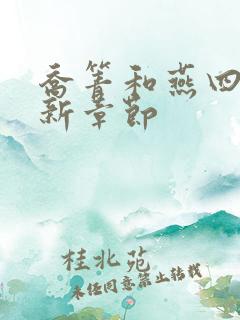 乔箐和燕四
新章节
桂北苑
未经同意禁止转载